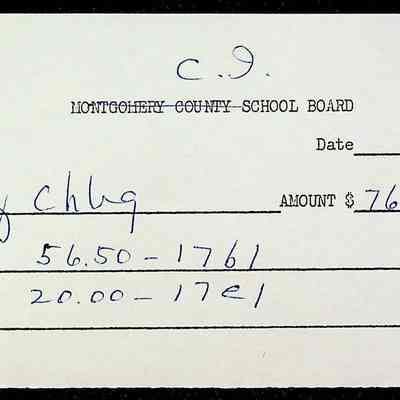 C.I.
MONTGOMERY COUNTY SCHOOL BOARD
Date
y Chbg AMOUNT $ 76
56.50 - 1761
20.00 - 17e1